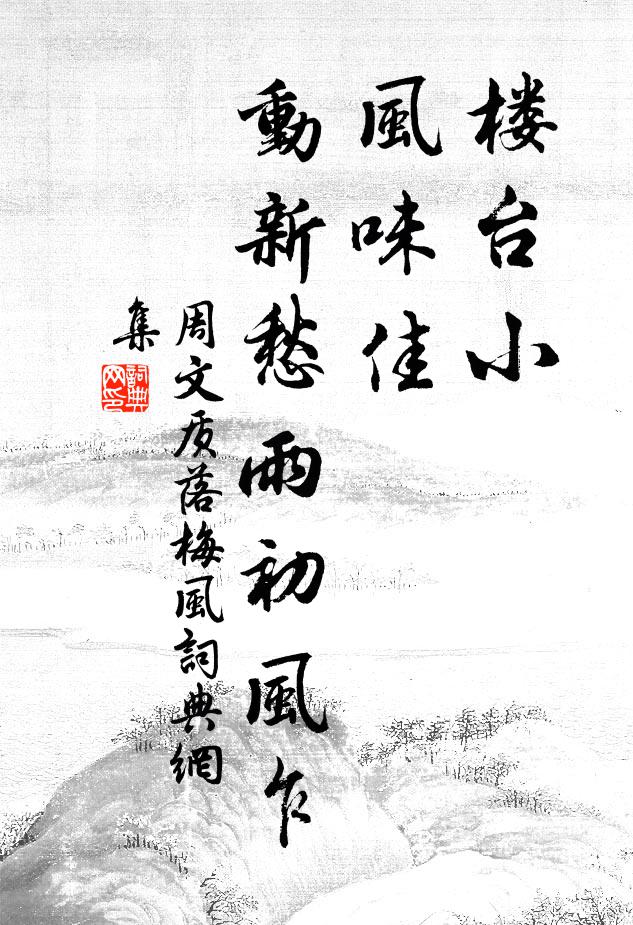 楼台小
風味佳
動新愁雨初風乍
周文质落梅風詞典網
集
詞典
网印